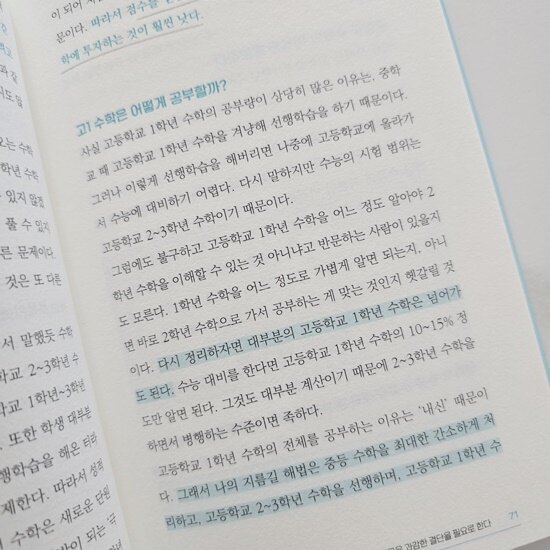 이 되어
문이다. 따라서 점수를
학에 투자하는 것이 훨씬 낫다.
고1 수학은 어떻게 공부할까?
사실 고등학교 1학년 수학의 공부량이 상당히 많은 이유는, 중학
교 때 고등학교 1학년 수학을 겨냥해 선행학습을 하기 때문이다.
그러나 이렇게 선행학습을 해버리면 나중에 고등학교에 올라가
서 수능에 대비하기 어렵다. 다시 말하지만 수능의 시험 범위는
고등학교 2~3학년 수학이기 때문이다.
그럼에도 불구하고 고등학교 1학년 수학을 어느 정도 알아야 2
학년 수학을 이해할 수 있는 것 아니냐고 반문하는 사람이 있을지
도 모른다. 1학년 수학을 어느 정도로 가볍게 알면 되는지, 아니
면 바로 2학년 수학으로 가서 공부하는 게 맞는 것인지 헷갈릴 것
이다. 다시 정리하자면 대부분의 고등학교 1학년 수학은 넘어가
도 된다. 수능 대비를 한다면 고등학교 1학년 수학의 10~15% 정
도만 알면 된다. 그것도 대부분 계산이기 때문에 2~3학년 수학을
하면서 병행하는 수준이면 족하다.
고등학교 1학년 수학의 전체를 공부하는 이유는 '내신' 때문이
다. 그래서 나의 지름길 해법은 중등 수학을 최대한 간소하게 처
리하고, 고등학교 2~3학년 수학을 선행하며, 고등학교 1학년 수
과감한 결단을 필요로 한다 71
오는 수학
수학이
있지 않겠
풀 수 있지
른 문제이다.
것은 또 다른
서 말했듯 수학
학교 2~3학년 수
학교 1학년~3학년
. 또한 학생 대부분
행학습을 해온 터라
제한다. 따라서 성적
수학은 새로운 단원
이 되는 '극